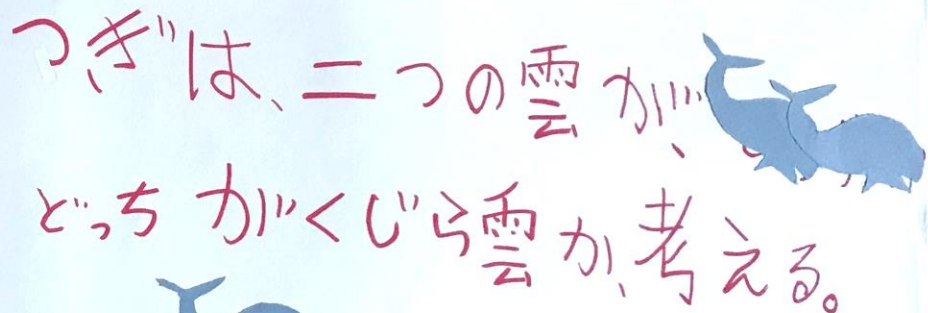 つぎは、二つの雲が、
どっちがくじら雲か、考える。